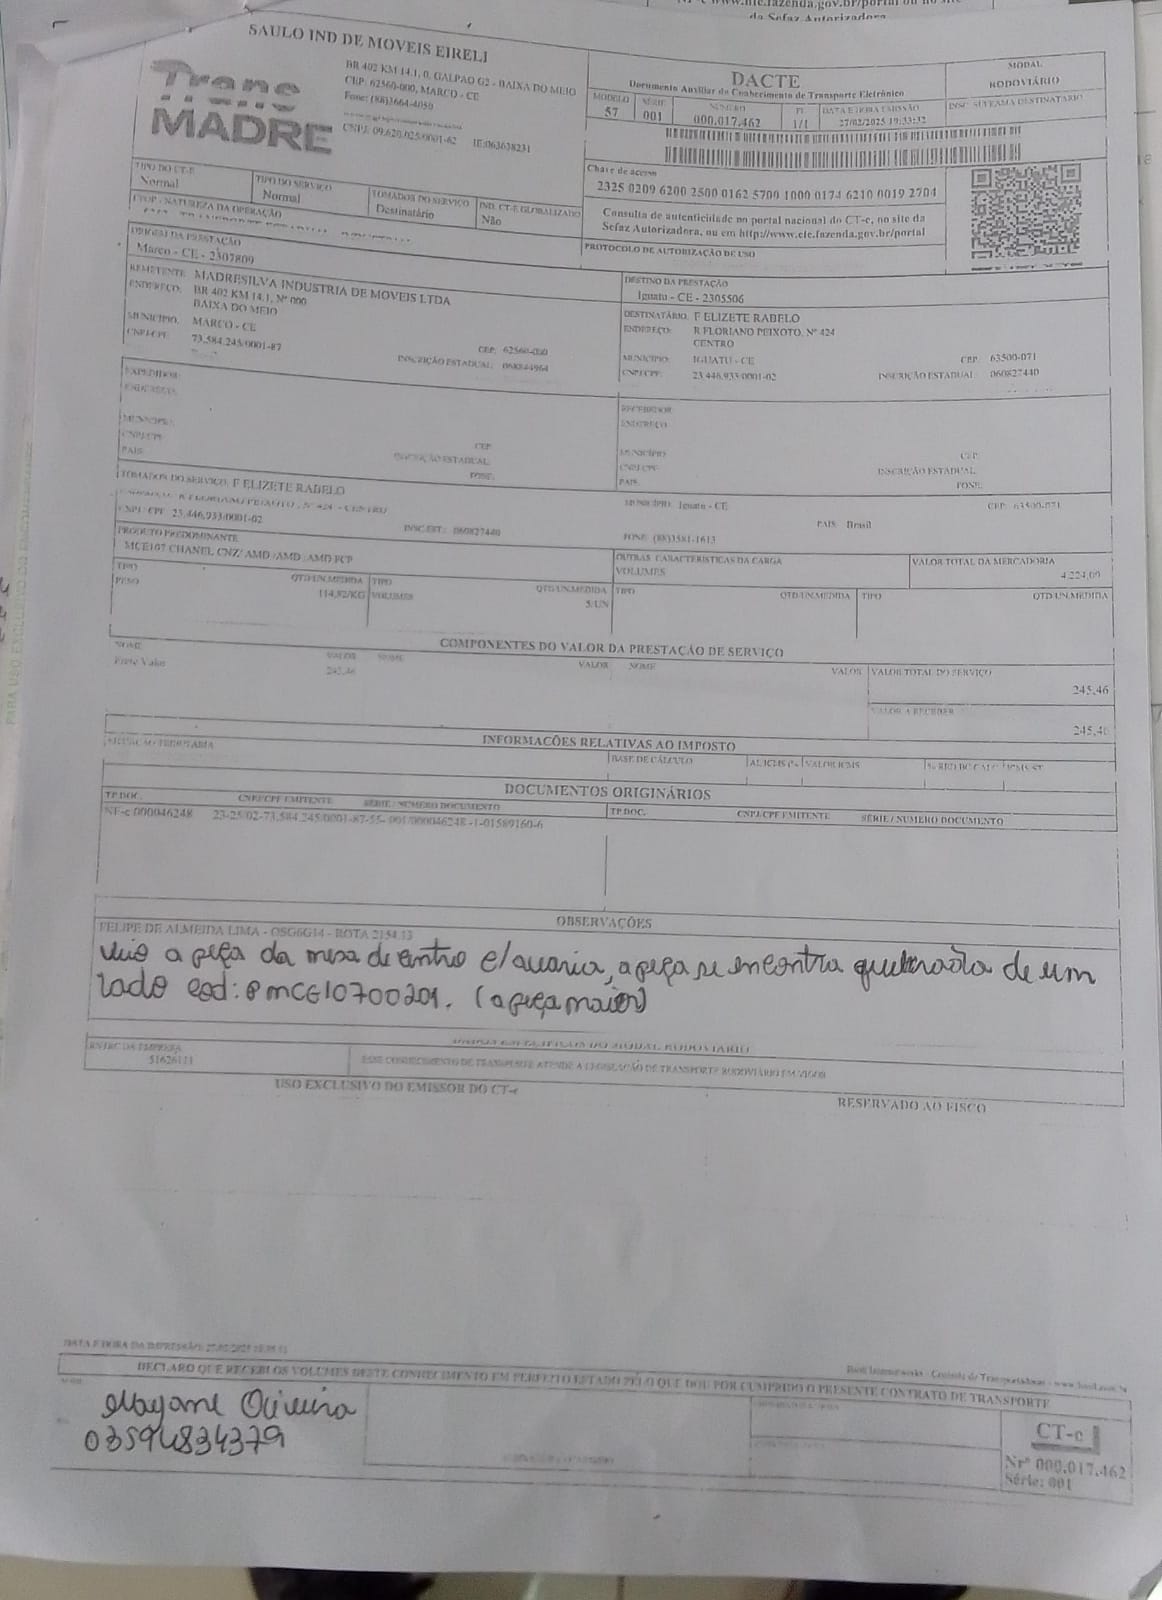 da Sefaz Autorizadora
SAULO IND DE MOVEIS EIRELI
Trans
MADRE
BR 402 KM 14.1, 0, GALPAO G2 - BAIXA DO MEIO
CEP: 62560-000, MARCO - CE
Fone: (88)3664-4050
CNPJ: 09.620.025/0001-62 IE:063638231
DACTE
Documento Auxiliar do Conhecimento de Transporte Eletrônico
MODAL
RODOVIÁRIO
MODELO
57
SÉRIE
001
NÚMERO
000.017.462
FL
1/1
DATA E HORA EMISSÃO
27/02/2025 19:33:32
INSC. SUFRAMA DESTINATÁRIO
Chave de acesso
2325 0209 6200 2500 0162 5700 1000 0174 6210 0019 2704
Consulta de autenticidade no portal nacional do CT-e, no site da
Sefaz Autorizadora, ou em http://www.cte.fazenda.gov.br/portal
PROTOCOLO DE AUTORIZAÇÃO DE USO
TIPO DO CT-E
Normal
TIPO DO SERVIÇO
Normal
TOMADOR DO SERVIÇO
Destinatário
IND. CT-E GLOBALIZADO
Não
CFOP - NATUREZA DA OPERAÇÃO
ORIGEM DA PRESTAÇÃO
Marco - CE - 2307809
DESTINO DA PRESTAÇÃO
Iguatu - CE - 2305506
REMETENTE: MADRESILVA INDUSTRIA DE MOVEIS LTDA
ENDEREÇO: BR 402 KM 14.1, Nº 000
BAIXA DO MEIO
MUNICÍPIO: MARCO - CE
CEP: 62560-000
CNPJ/CPF: 73.584.245/0001-87
INSCRIÇÃO ESTADUAL: 068844964
DESTINATÁRIO: F ELIZETE RABELO
ENDEREÇO: R FLORIANO PEIXOTO, Nº 424
CENTRO
MUNICÍPIO: IGUATU - CE
CEP: 63500-071
CNPJ/CPF: 23.446.933/0001-02
INSCRIÇÃO ESTADUAL: 060827440
EXPEDIDOR:
ENDEREÇO:
MUNICÍPIO:
CEP:
CNPJ/CPF:
INSCRIÇÃO ESTADUAL:
PAIS:
FONE:
RECEBEDOR
ENDEREÇO
MUNICÍPIO:
CEP:
CNPJ/CPF:
INSCRIÇÃO ESTADUAL:
PAIS:
FONE:
TOMADOR DO SERVIÇO: F ELIZETE RABELO
MUNICÍPIO: Iguatu - CE
CEP: 63500-071
CNPJ/CPF: 23.446.933/0001-02
INSC.EST.: 060827440
FONE: (88)3581-1613
PAIS: Brasil
PRODUTO PREDOMINANTE
MCE107 CHANEL CNZ/ AMD /AMD /AMD PCP
OUTRAS CARACTERÍSTICAS DA CARGA
VOLUMES
VALOR TOTAL DA MERCADORIA
4.224,00
TIPO QTD/UN.MEDIDA TIPO QTD/UN.MEDIDA TIPO QTD/UN.MEDIDA TIPO QTD/UN.MEDIDA
PESO 114,82/KG VOLUMES 5/UN
COMPONENTES DO VALOR DA PRESTAÇÃO DE SERVIÇO
NOME VALOR NOME VALOR NOME VALOR
Frete Valor 245,46
VALOR TOTAL DO SERVIÇO
245,46
VALOR A RECEBER
245,46
INFORMAÇÕES RELATIVAS AO IMPOSTO
SITUAÇÃO TRIBUTÁRIA
BASE DE CÁLCULO
VALOR ICMS
DOCUMENTOS ORIGINÁRIOS
TP.DOC. CNPJ/CPF EMITENTE SÉRIE / NÚMERO DOCUMENTO TP.DOC. CNPJ/CPF EMITENTE SÉRIE / NÚMERO DOCUMENTO
NF-e 000046248 23-25/02-73.584.245/0001-87-55- 001/000046248 -1-01589160-6
OBSERVAÇÕES
FELIPE DE ALMEIDA LIMA - OSG6G14 - ROTA 2154.13
veio a peça da mesa de centro c/ avaria, a peça se encontra quebrada de um
lado cod: PMCE10700201. (a peça maior)
RNTRC DA EMPRESA
51626111
ESSE CONHECIMENTO DE TRANSPORTE ATENDE A LEGISLAÇÃO DE TRANSPORTE RODOVIÁRIO EM VIGOR
USO EXCLUSIVO DO EMISSOR DO CT-e
RESERVADO AO FISCO
DECLARO QUE RECEBI OS VOLUMES DESTE CONHECIMENTO EM PERFEITO ESTADO PELO QUE DOU POR CUMPRIDO O PRESENTE CONTRATO DE TRANSPORTE
Mayane Oliveira
03594834379
CT-e
Nrº 000.017.462
Série: 001